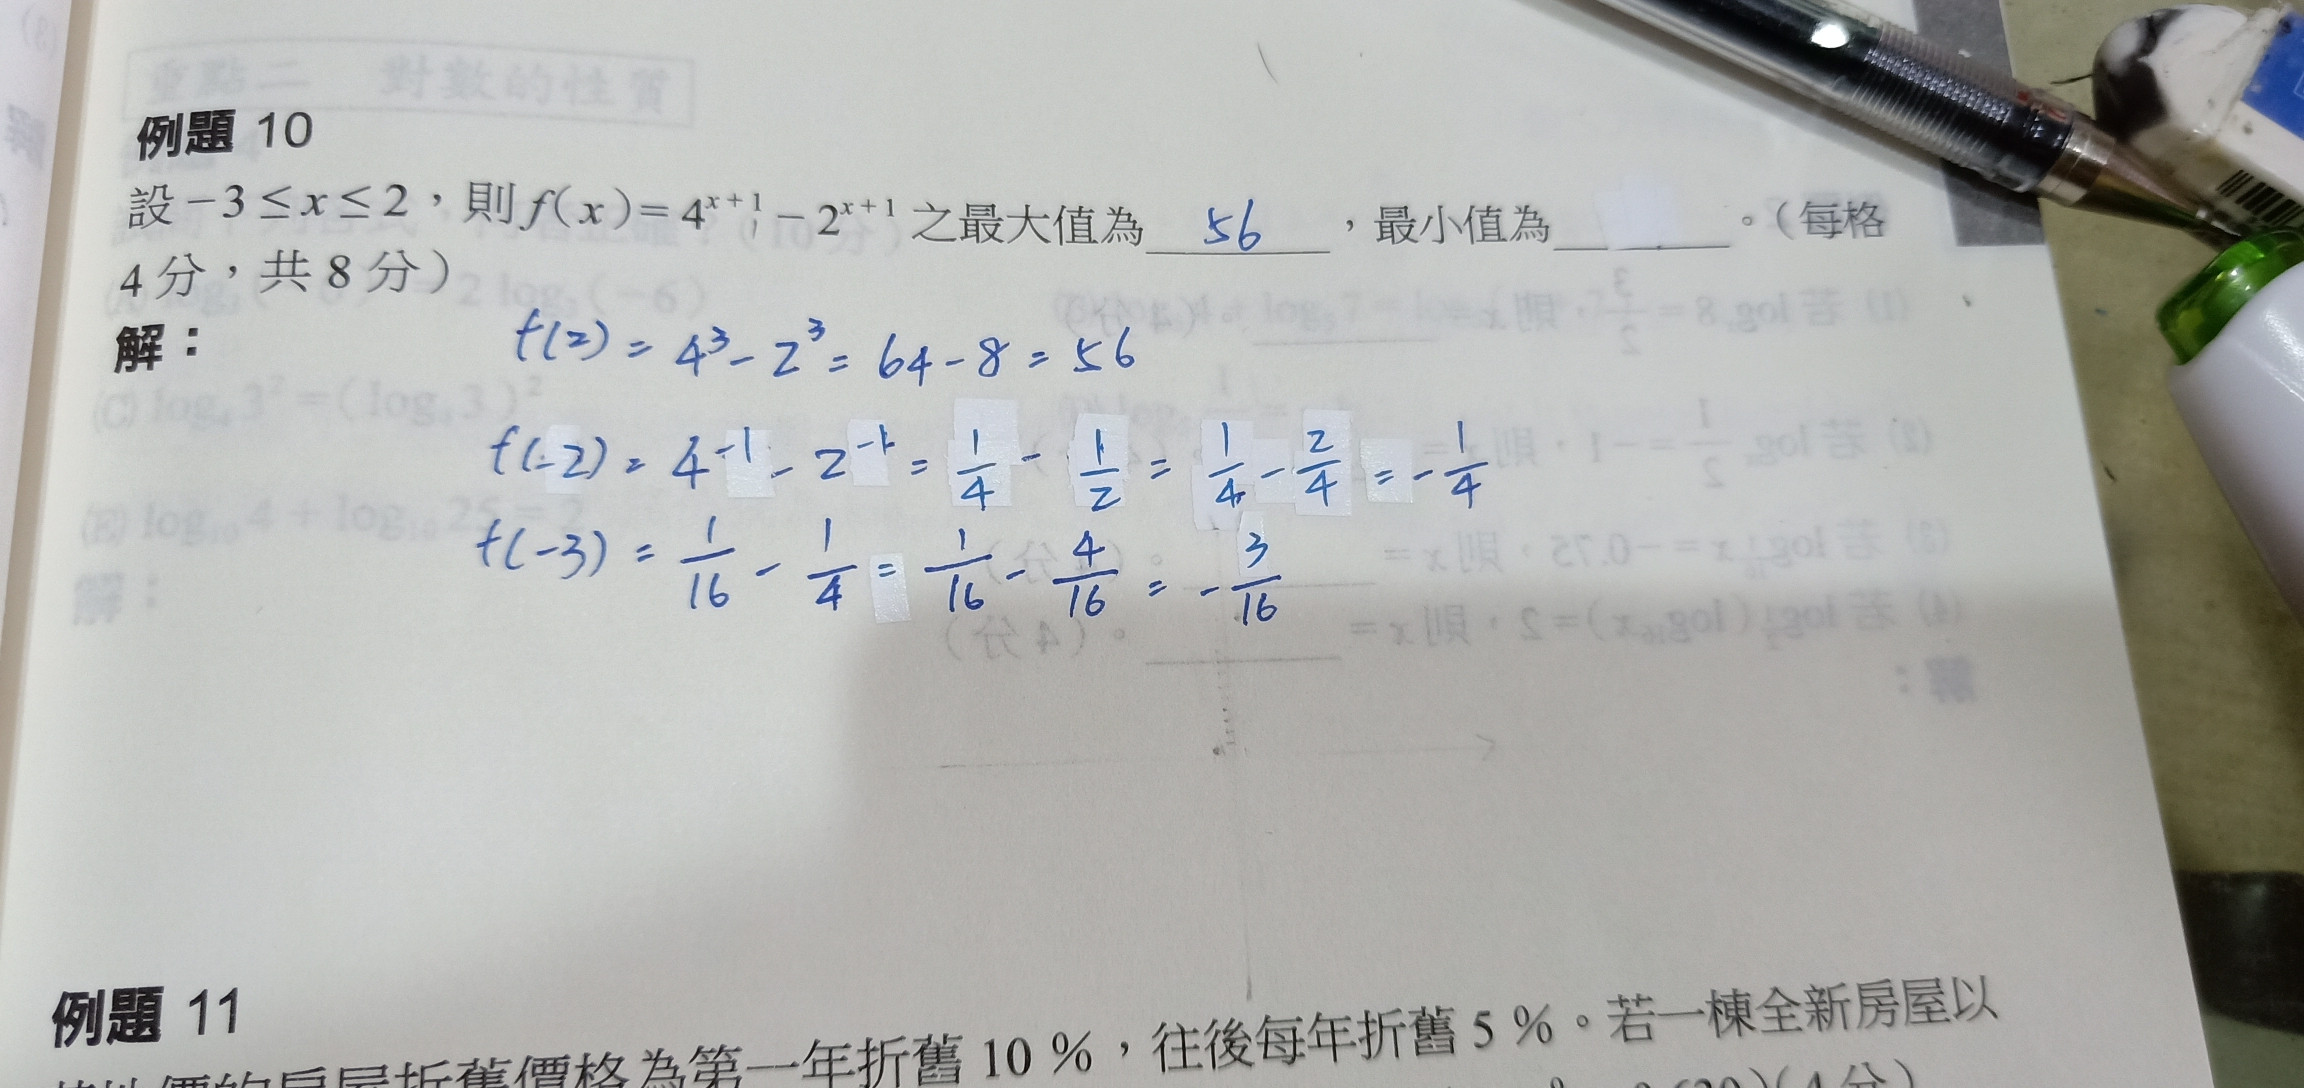 例題 10
設 -3 ≤ x ≤ 2，則 f(x) = 4^{x+1} - 2^{x+1} 之最大值為 56 ，最小值為______。（每格
4 分，共 8 分）
解：
f(2) = 4^3 - 2^3 = 64 - 8 = 56
f(-2) = 4^{-1} - 2^{-1} = 1/4 - 1/2 = 1/4 - 2/4 = -1/4
f(-3) = 1/16 - 1/4 = 1/16 - 4/16 = -3/16
例題 11
價的房屋折舊價格為第一年折舊 10 %，往後每年折舊 5 %。若一棟全新房屋以